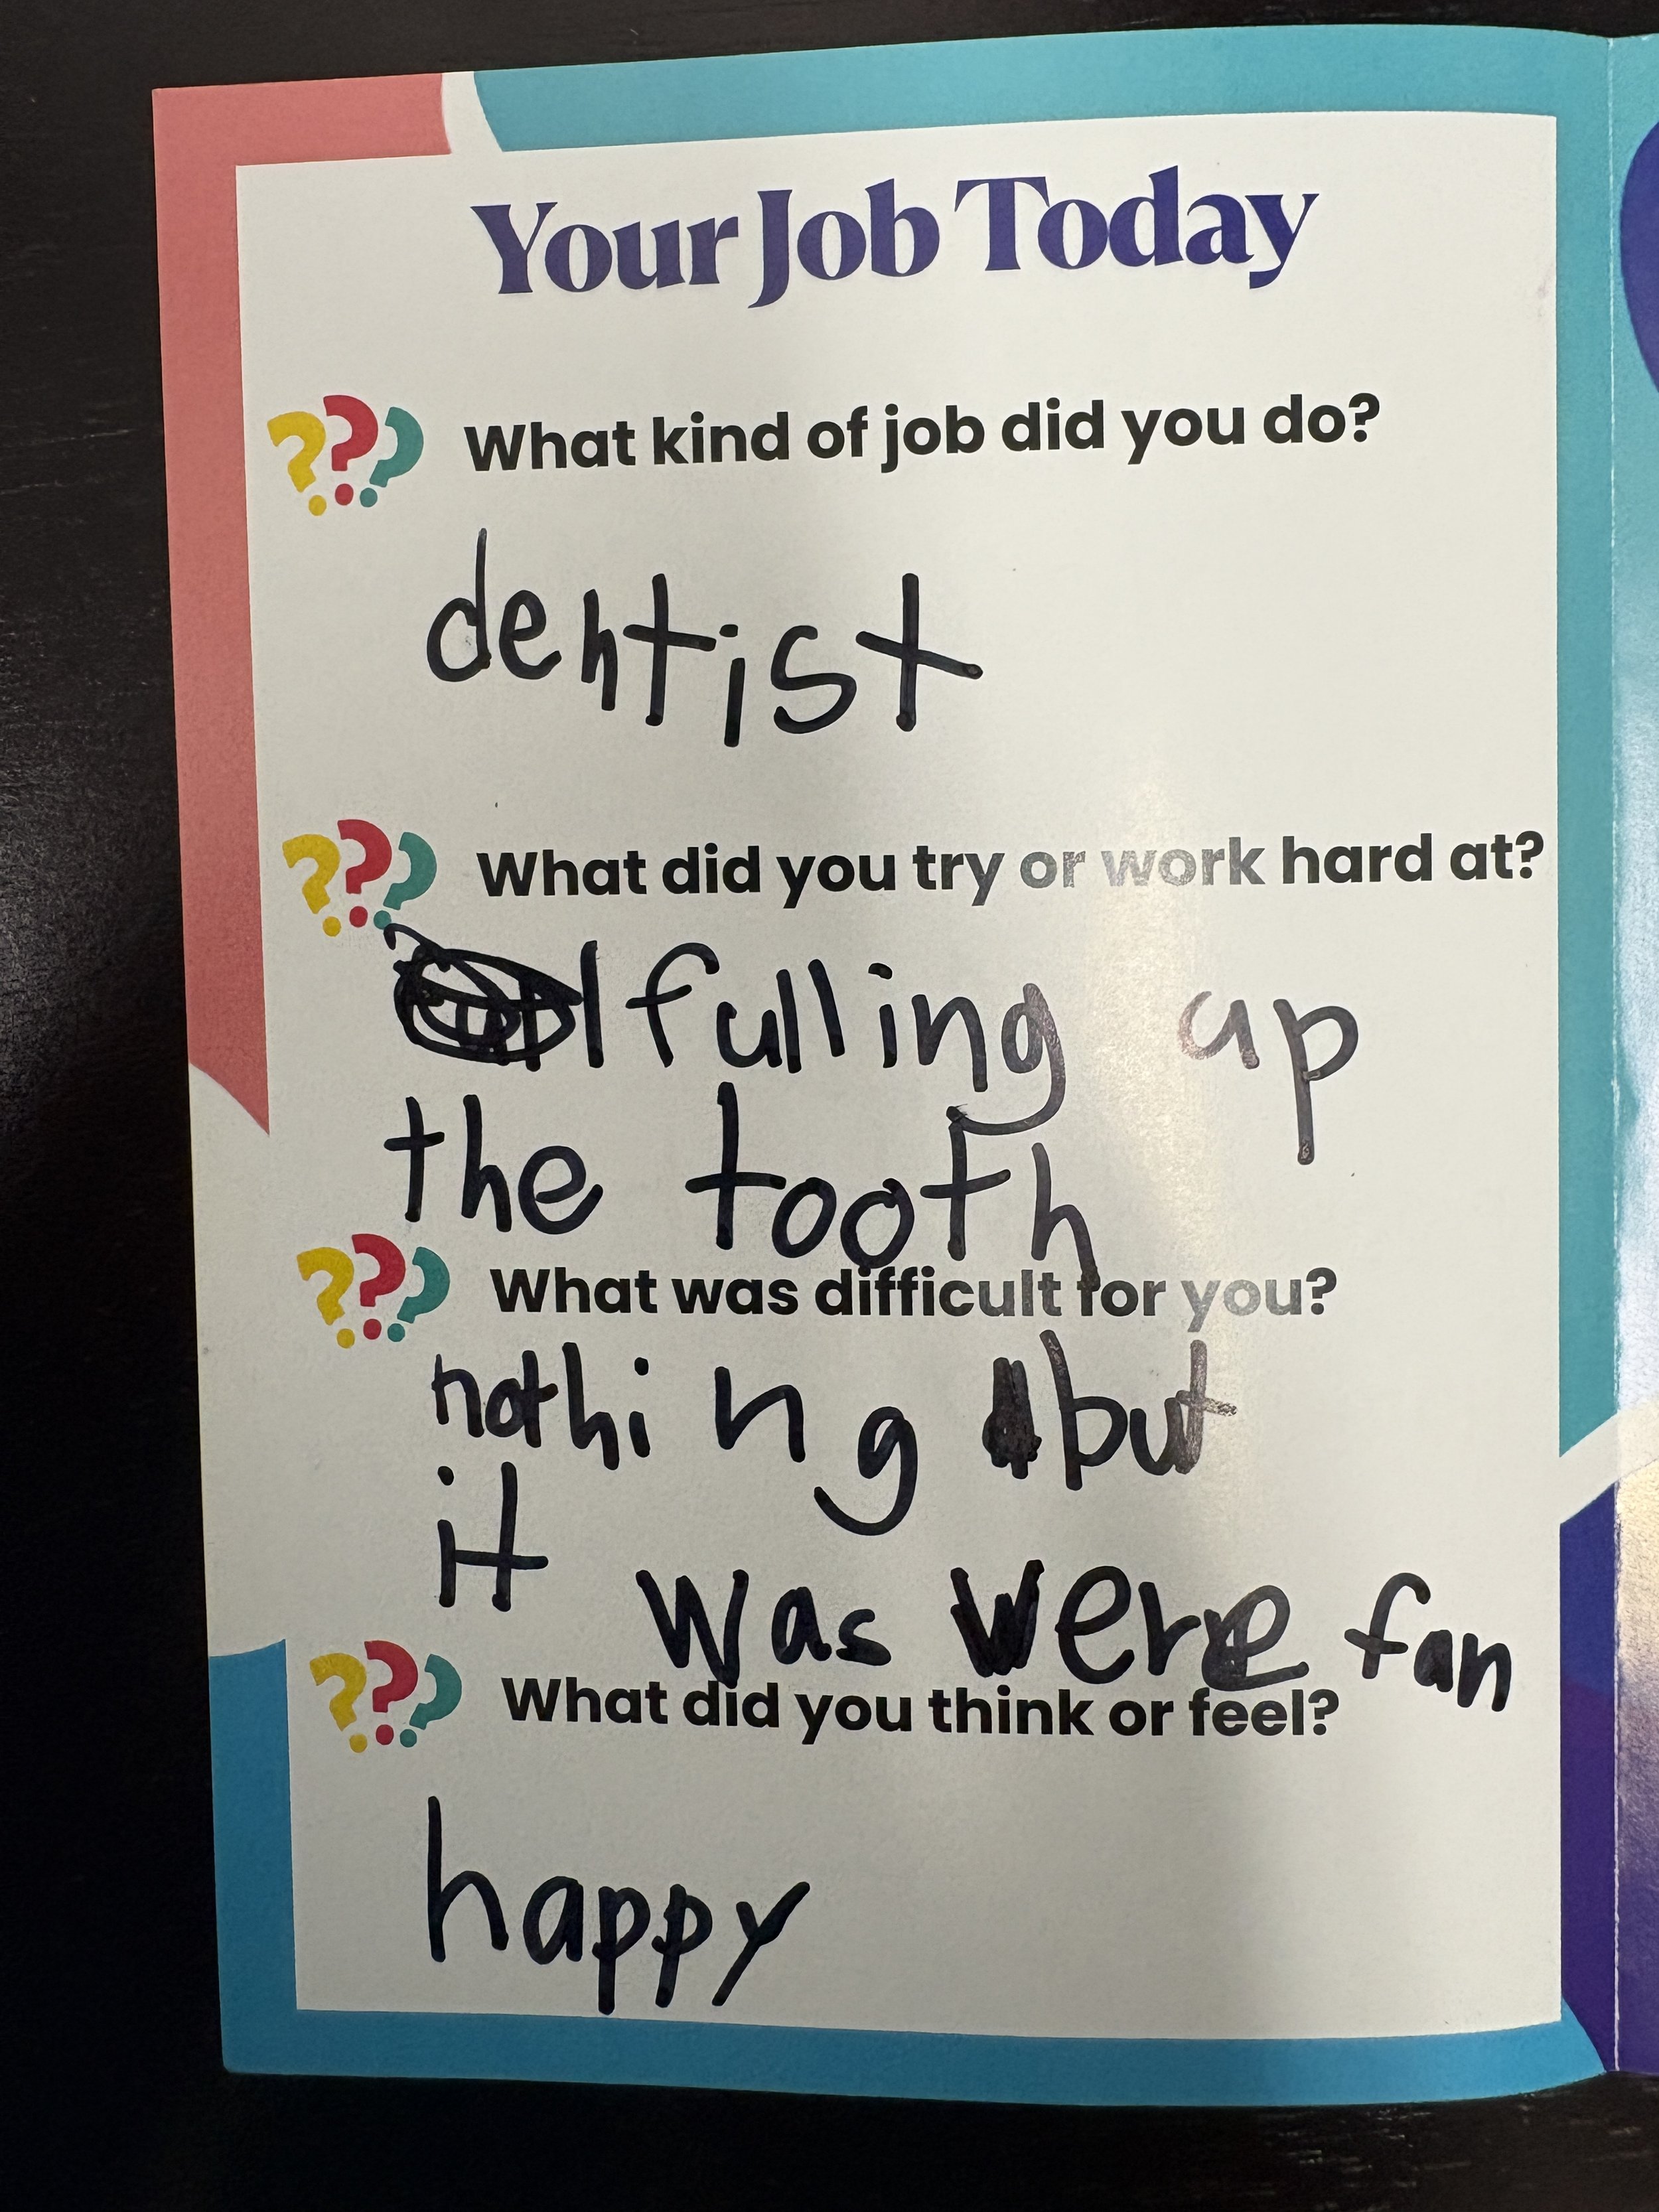 Your Job Today
??? What kind of job did you do?
dentist
??? What did you try or work hard at?
fulling up
the tooth
??? What was difficult for you?
nothing but
it was were fan
??? What did you think or feel?
happy